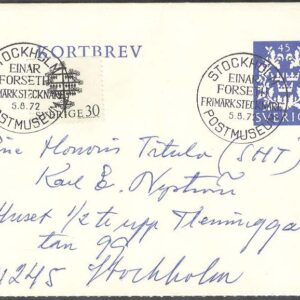 KORTBREV
STOCKHOLM
EINAR
FORSETH
FRIMÄRKSTECKNARE
5.8.72
POSTMUSEUM
SVERIGE 30
STOCKHOLM
EINAR
FORSETH
FRIMÄRKSTECKNARE
5.8.72
POSTMUSEUM
45
SVERIGE
Honoris Titulo (SHT)
Karl E. Nyström
Huset 1/2 tr upp Fleminggatan
tan 99
Stockholm